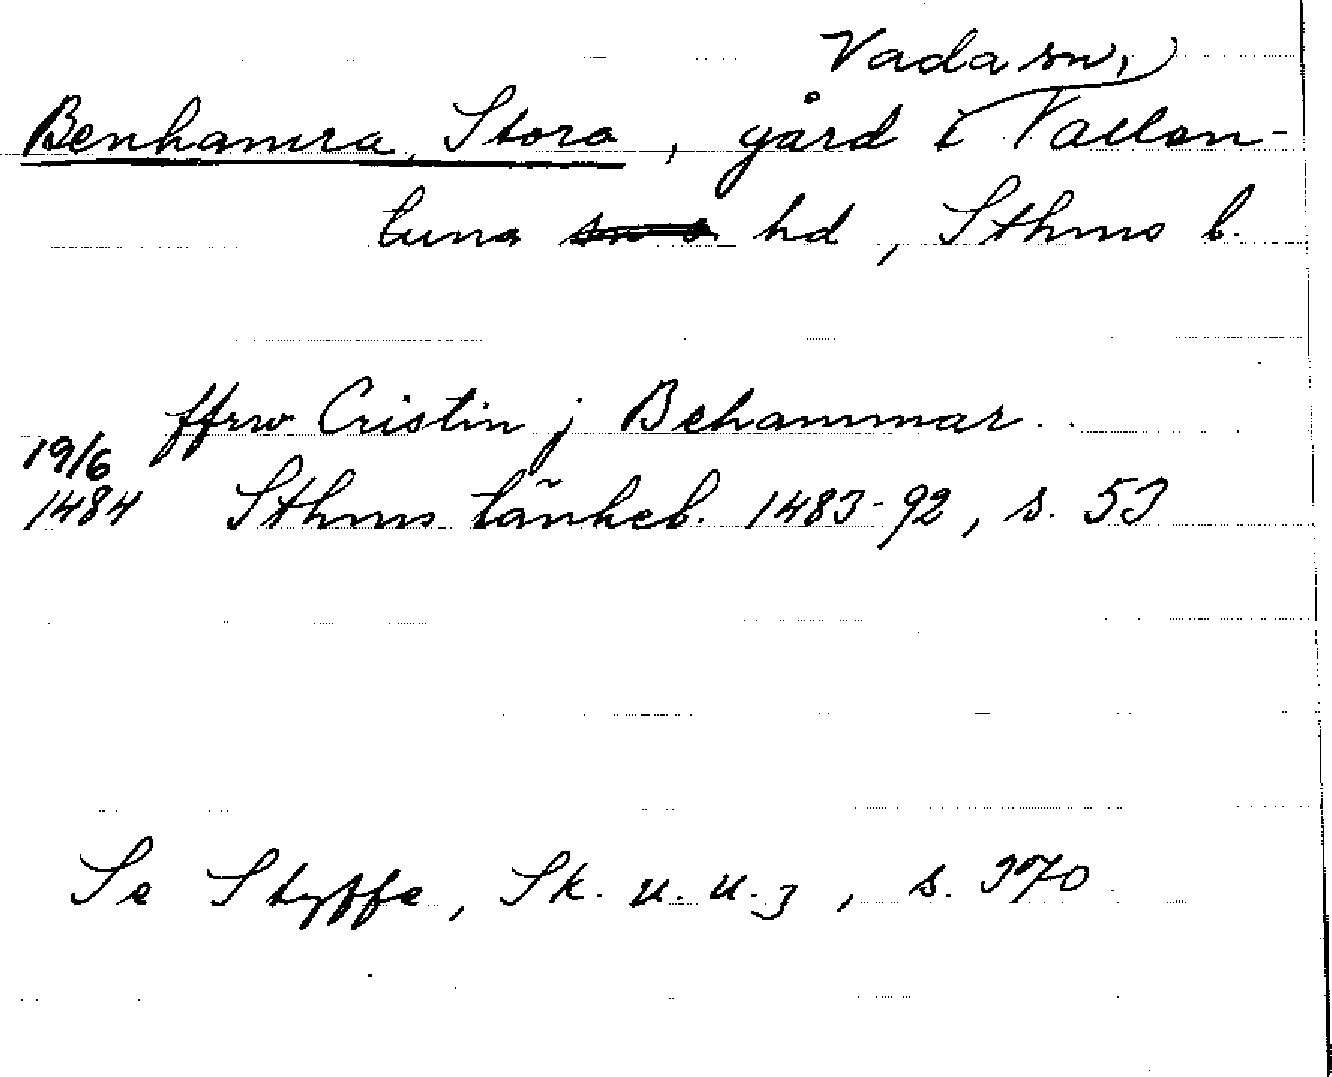 Vada sn,
Benhamra, Stora, gård i Vallen-
tuna hd, Sthms l.
ffrw Cristin j Behammar
19/6
1484 Sthms tänkeb. 1483-92, s. 53
Se Styffe, Sk. u. u. 3, s. 370